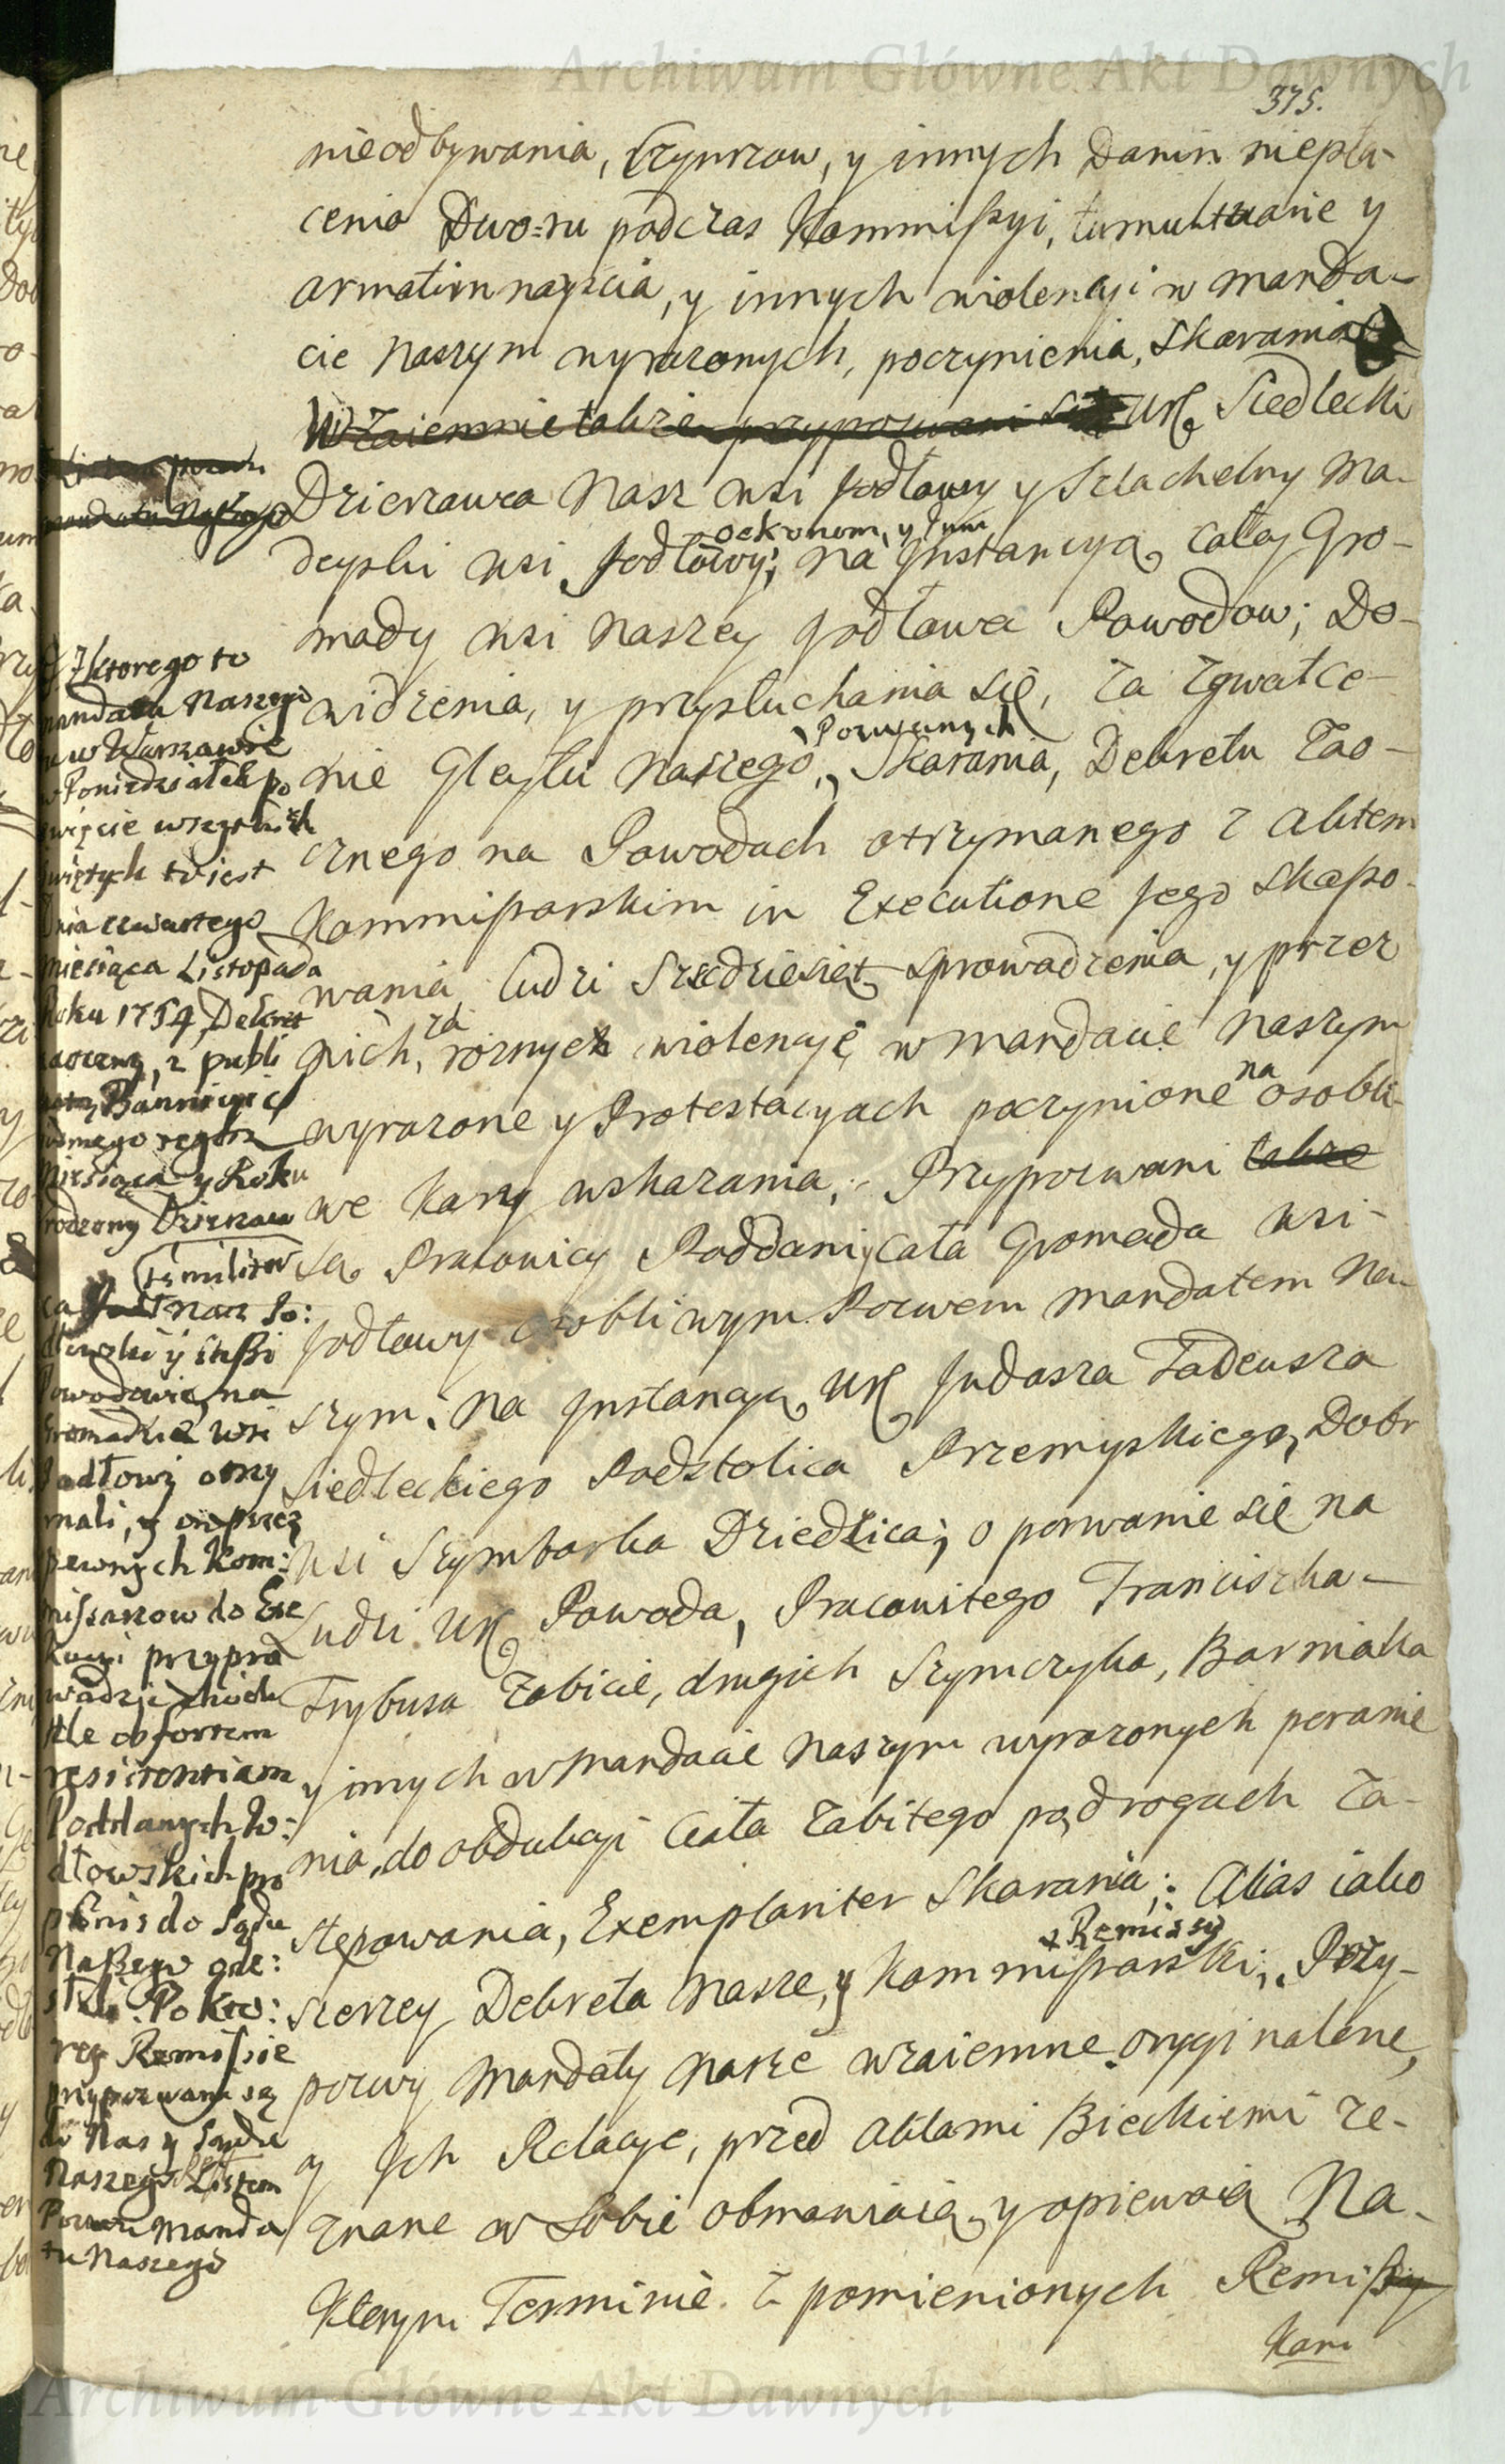 Archiwum Główne Akt Dawnych
375.
nieodbywania, Czynszow, y innych Danin niepła-
cenia Dwo=ru podczas Kommissyi, tumultuarie y
armatim nayścia, y innych violencyi w manda-
cie naszym wyrazonych, poczynienia, skarania
Wzaiemnie także przypozwani są Ur. Siedlecki
Dzierzawca Nasz wsi Jodłowy y Szlachetny Ma-
deyski wsi Jodłowy; oekonom, y Sum na Jnstancyą całey Gro-
mady wsi naszey Jodłowa Powodow; Do-
widzenia, y przysłuchania się, za zgwałce-
nie Gleytu naszego, Pozwanych Skarania, Dekretu Zao-
cznego na Powodach otrzymanego z aktem
Kommissarskim in Executione jego skasso-
wania, ludzi Sześdziesiąt sprowadzenia, y przez
nich, za rożnych violencye w mandacie naszym
wyrazone y Protestacyach poczynione na osobli-
we kary wskazania, Przypozwani także
są Pracowicy Poddani y cała Gromada wsi-
Jodłowy osobliwym Pozwem mandatem Na-
szym: na Jnstancyą Ur. Judasza Tadeusza
Siedleckiego Podstolica Przemyskiego, Dobr
wsi Szymbarka Dziedzica; o porwanie się na
Ludzi Ur. Powoda, Pracowitego Franciszka-
Trybusa zabicie, drugich Szymczyka, Barniaka
y innych w mandacie naszym wyrazonych poranie
nia, do obdukcyi Ciała zabitego po drogach za-
stępowania, Exemplariter Skarania; Alias iako
szerzey Dekreta nasze, y Kommissarski, Remissy Przy-
pozwy mandaty nasze wzaiemne oryginalne,
a Jch Relacye, przed Aktami Bieckiemi ze-
znane w Sobie obmawiaią, y opiewaią Na-
Ktorym Terminie z pomienionych Remissy
Kom
mandatu Naszego
Z ktorego to
mandatu Naszego
w Warszawie
w Poniedziałek po
swięcie wszystkich
swiętych to iest
dnia czwartego
Miesiąca Listopada
Roku 1754, Dekret
zaoczny, z publi
katą Bannicyi
Miesiąca y Roku
rodzony Dzierzaw
ca nasz Jo:
dłowski y insi
Powodowie, na
Gromadzie wsi
Jodłowy otrzy
mali, y on przez
pewnych Kom:
missarzow do Exe
kucyi przypro
wadzić chciał
ale ob fortem
resistentiam
Poddanych Jo:
dłowskich pro
Naszego ode:
słali. Po kto:
rey Remissie
przypozwani są
do Nas y Sądu
Naszego Listem
Pozwu Manda
tu Naszego
Archiwum Główne Akt Dawnych